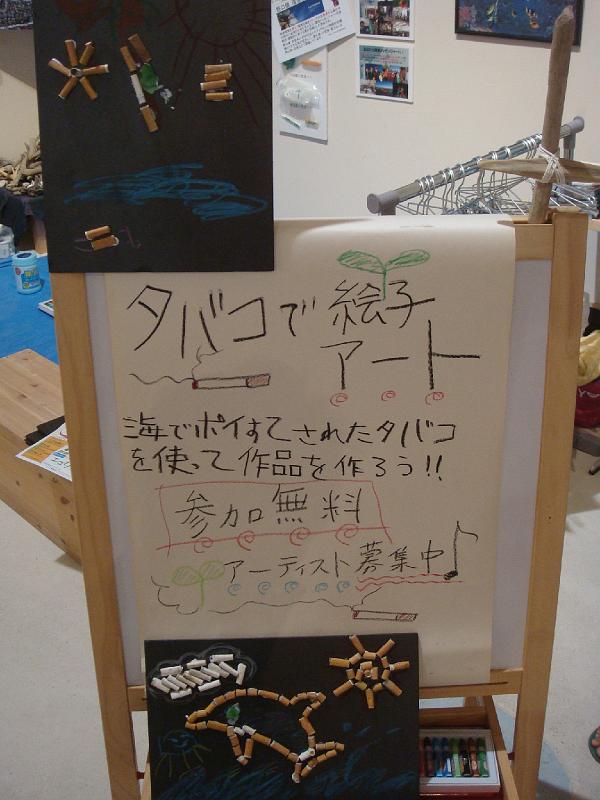 タバコで絵子
アート
海でポイすてされたタバコ
を使って作品を作ろう!!
参加無料
アーティスト募集中